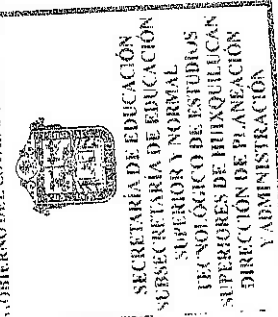 GOBIERNO DEL
SECRETARÍA DE EDUCACIÓN
SUBSECRETARÍA DE EDUCACIÓN
SUPERIOR Y NORMAL
TECNOLÓGICO DE ESTUDIOS
SUPERIORES DE HUIXQUILUCAN
DIRECCIÓN DE PLANEACIÓN
Y ADMINISTRACIÓN